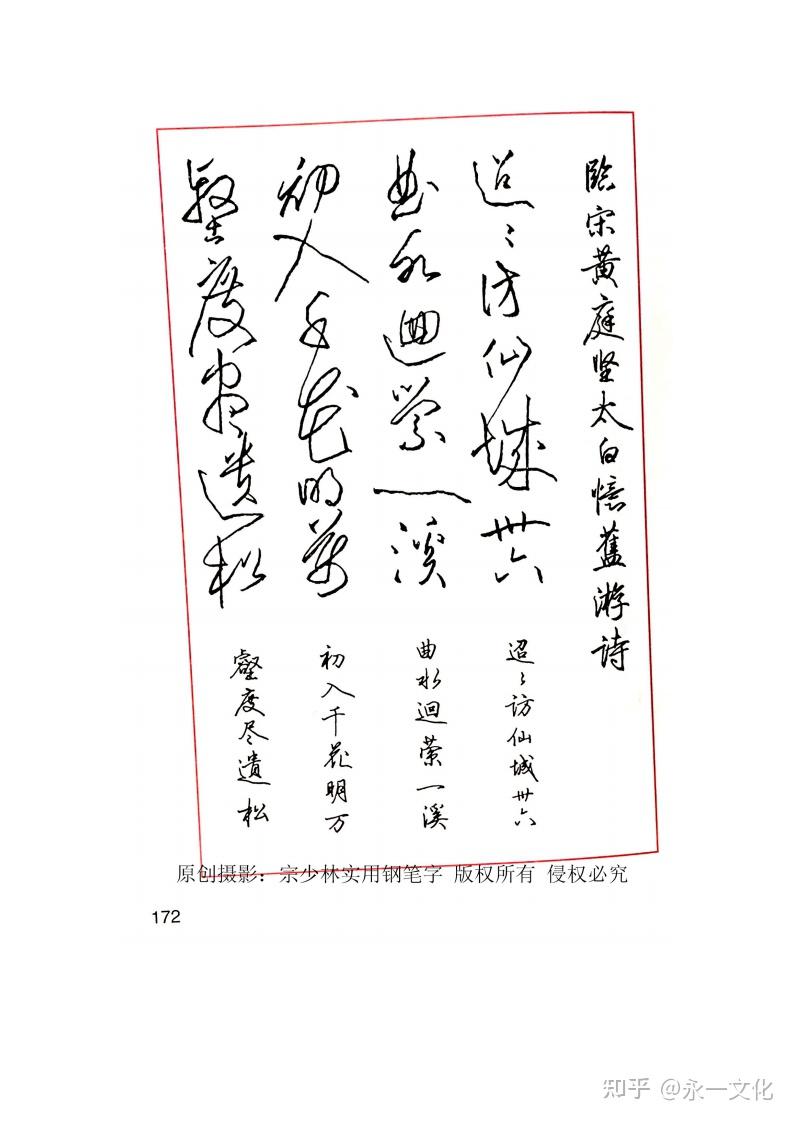 臨宋黄庭坚太白憶舊游诗
迢〻訪仙城卅六
曲水迴萦一溪
初入千花明万
壑度尽遺松
迢〻訪仙城卅六
曲水迴萦一溪
初入千花明万
壑度尽遺松
原创摄影：宗少林实用钢笔字 版权所有 侵权必究
172
知乎 @永一文化